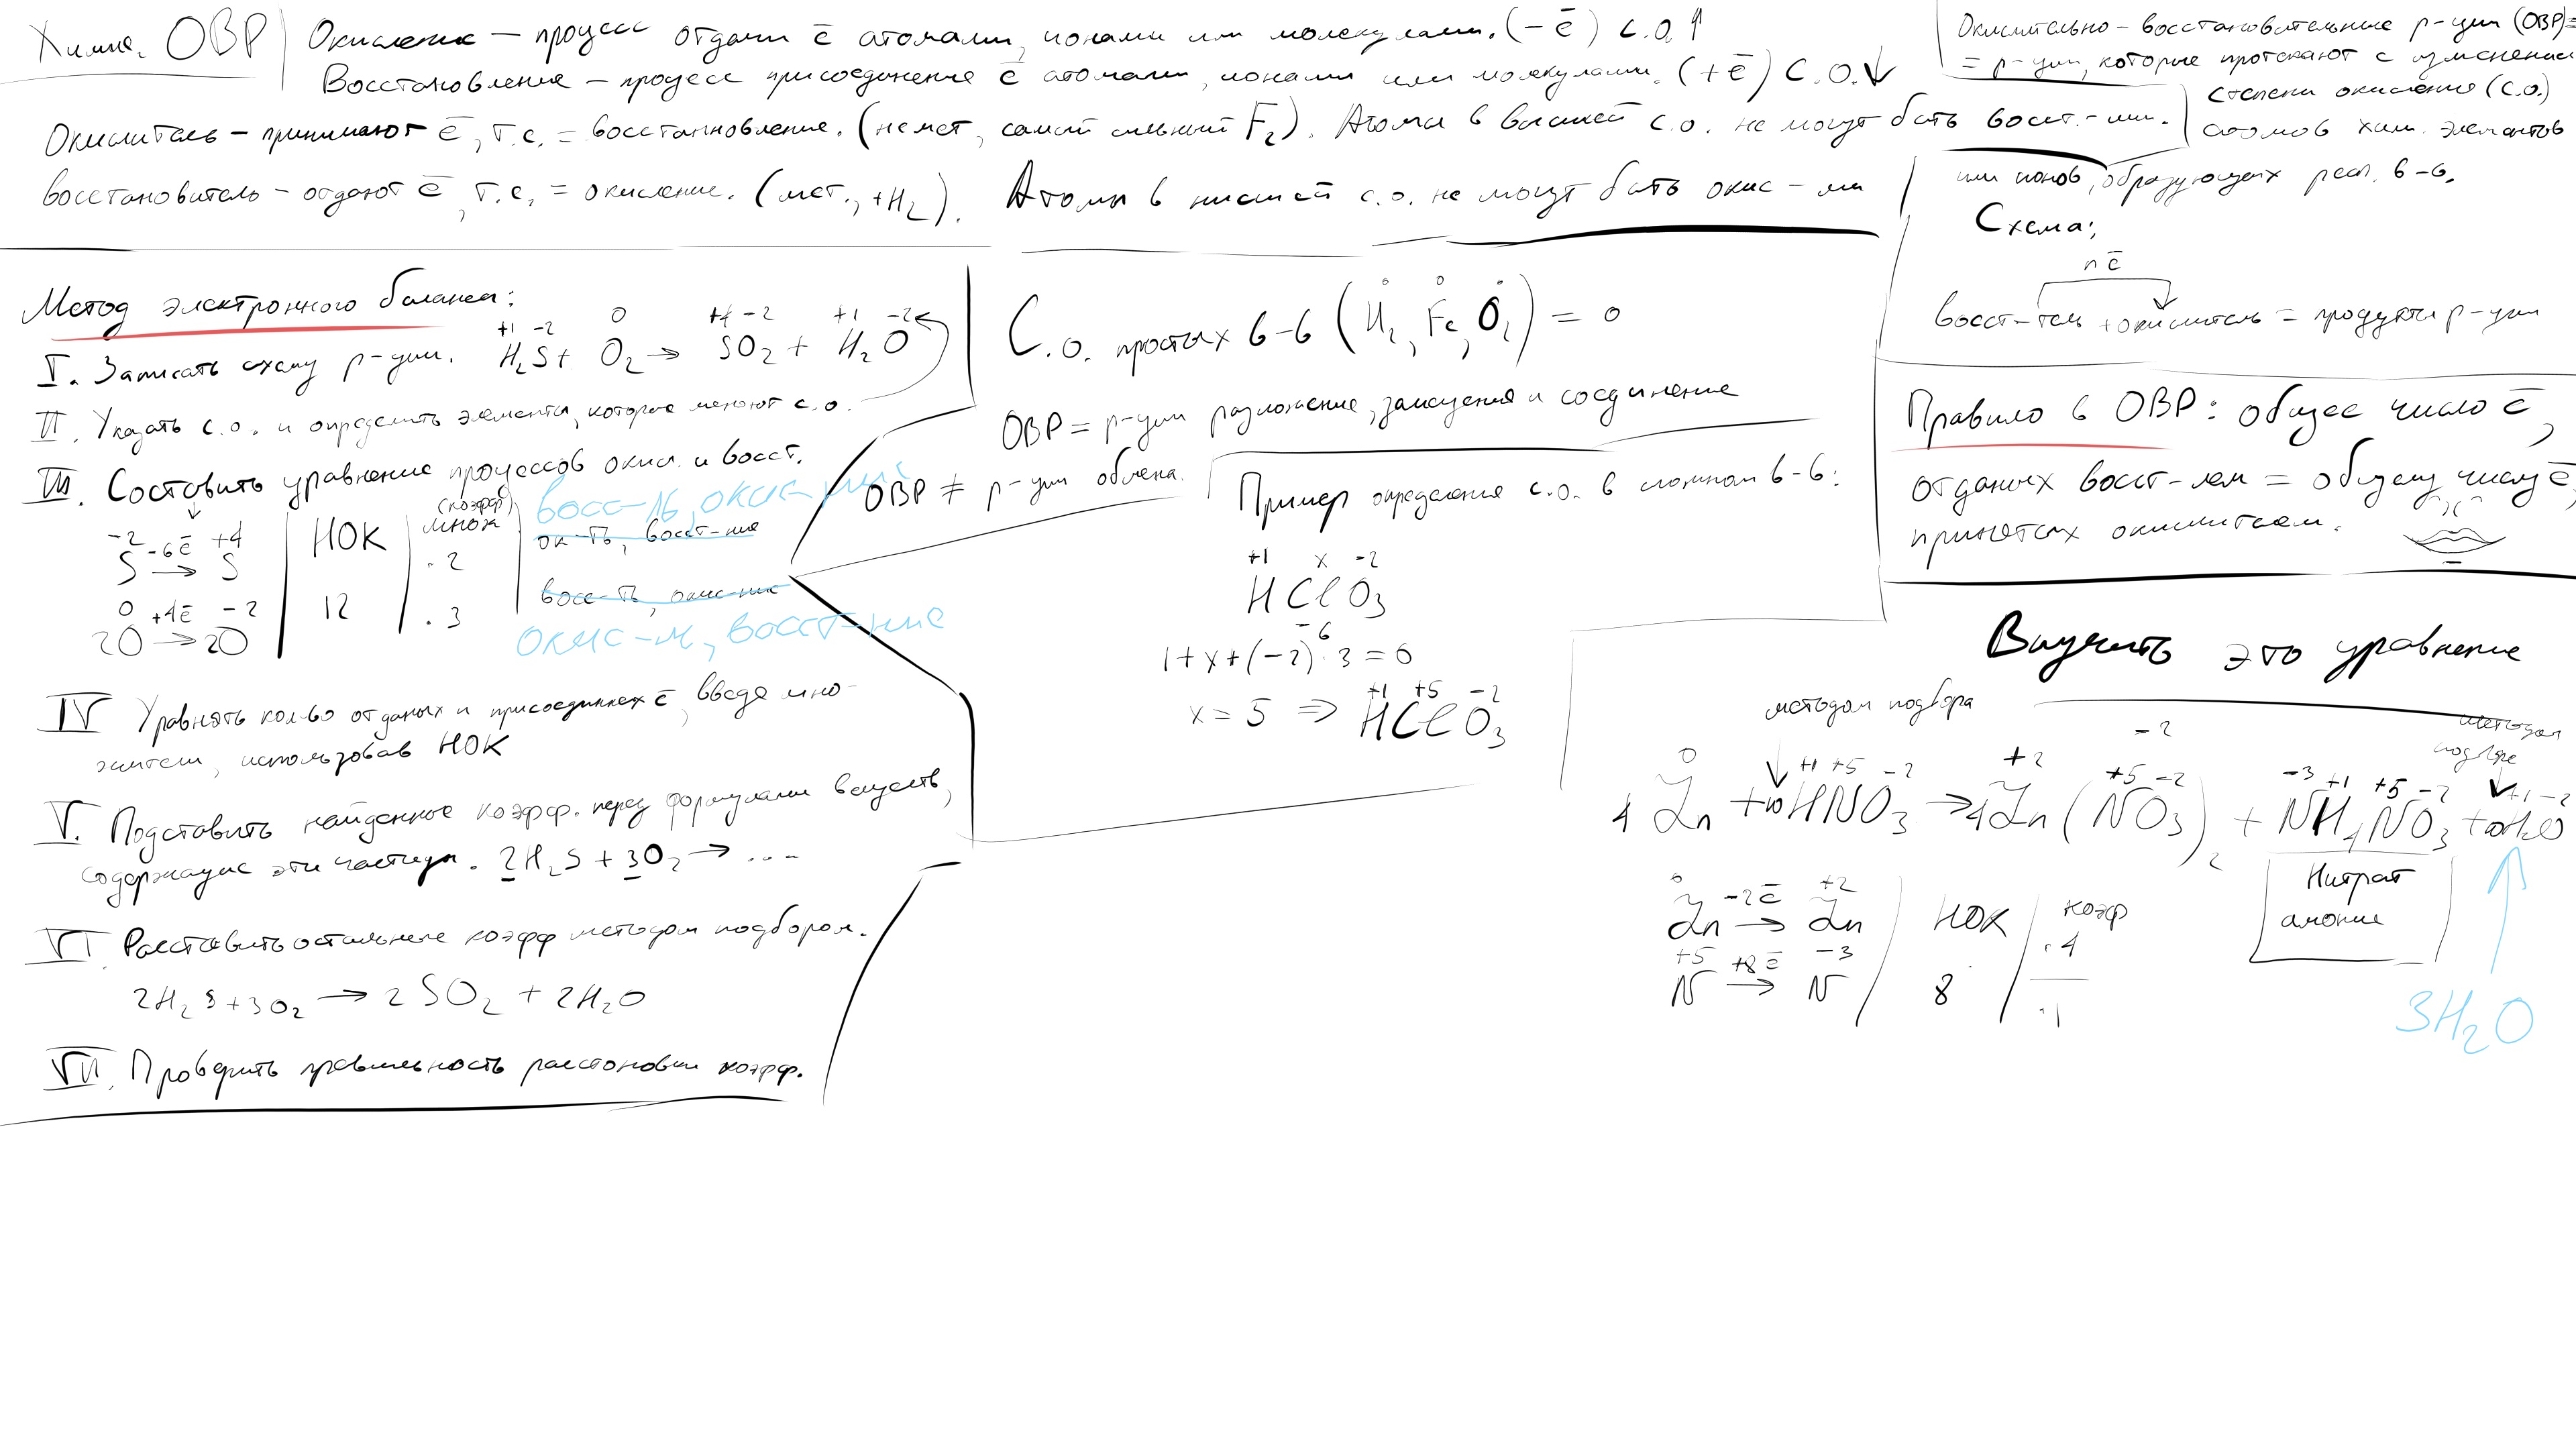 Химия. ОВР
Окисление – процесс отдачи ē атомами, ионами или молекулами. (– ē) С.О.↑
Восстановление – процесс присоединение ē атомами, ионами или молекулами. (+ ē) С.О.↓
Окислитель – принимают ē, т.е. = восстанновление. (немет, самый сильный F₂). Атомы в высшей с.о. не могут быть восст.-ми.
восстановитель – отдают ē, т.е. = окисление. (мет., +H₂). Атомы в низшей с.о. не могут быть окис-ми
Окислительно-восстановительные р-ции (ОВР)=
= р-ции, которые протекают с изменением
степени окисления (с.о.)
атомов хим. элементов
или ионов, образующих реаг. в-в.
Схема:
n ē
восст-тель + окислитель = продукты р-ции
Метод электронного баланса:
I. Записать схему р-ции.
+1 -2 0 +4 -2 +1 -2
H₂S + O₂ → SO₂ + H₂O
II. Указать с.о. и определить элементы, которые меняют с.о.
III. Составить уравнение процессов окисл. и восст.
-2 -6ē +4
S → S
0 +4ē -2
2O → 2O
НОК
12
(коэфф)
множ
. 2
. 3
восс-ль, окис-ний
ок-ть, восст-ние
восс-ть, окис-ние
окис-ль, восст-ние
IV Уравнять кол-во отданых и присоединнех ē, введя мно-
жители, использовав НОК
V. Подставить найденное коэфф. перед формулами веществ,
содержащие эти частицы. 2H₂S + 3O₂ → ....
VI Расставить остальные коэфф методом подбором.
2H₂S + 3O₂ → 2SO₂ + 2H₂O
VII. Проверить правильность расстоновки коэфф.
С.о. простых в-в (H₂⁰, Fe⁰, O₂⁰) = 0
ОВР = р-ции разложение, замещения и соединение
ОВР ≠ р-ции обмена.
Пример определения с.о. в сложном в-в:
+1 x -2
HClO₃
-6
1+x+(-2)·3=0
+1 +5 -2
x = 5 ⇒ HClO₃
Правило в ОВР: общее число ē,
отданых восст-лем = общему числу ē,
принятых окислителем.
Выучить это уравнение
методом подбора
методом
подбора
0 +1 +5 -2 +2 +5 -2 -2 -3 +1 +5 -2 +1 -2
4 Zn + 10HNO₃ → 4Zn(NO₃)₂ + NH₄NO₃ + H₂O
Нитрат
амоние
3H₂O
0 -2ē +2
Zn → Zn
+5 +8ē -3
N → N
НОК
8
коэф
. 4
. 1